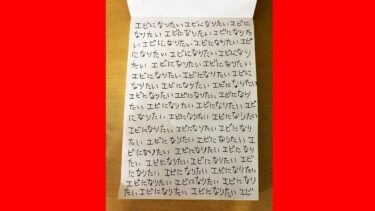 エビになりたいエビになりたいエビに
なりたい エビになりたい エビになりた
い エビになりたい エビになりたい エビ
になりたい エビになりたい エビになり
たい エビになりたい エビになりたい
エビになりたい エビになりたい エビに
なりたい エビになりたい エビになりた
い エビになりたい エビになりたい エビになり
たい エビになりたい エビになりたい エビ
になりたい エビになりたい エビになりたい
エビになりたい エビになりたい エビになり
たい エビになりたい エビになりたい エビ
になりたい エビになりたい エビになりた
い エビになりたい エビになりたい エビ
になりたい エビになりたい エビになりたい
エビになりたい エビになりたい エビになり
たい エビになりたい エビになりたい エビ